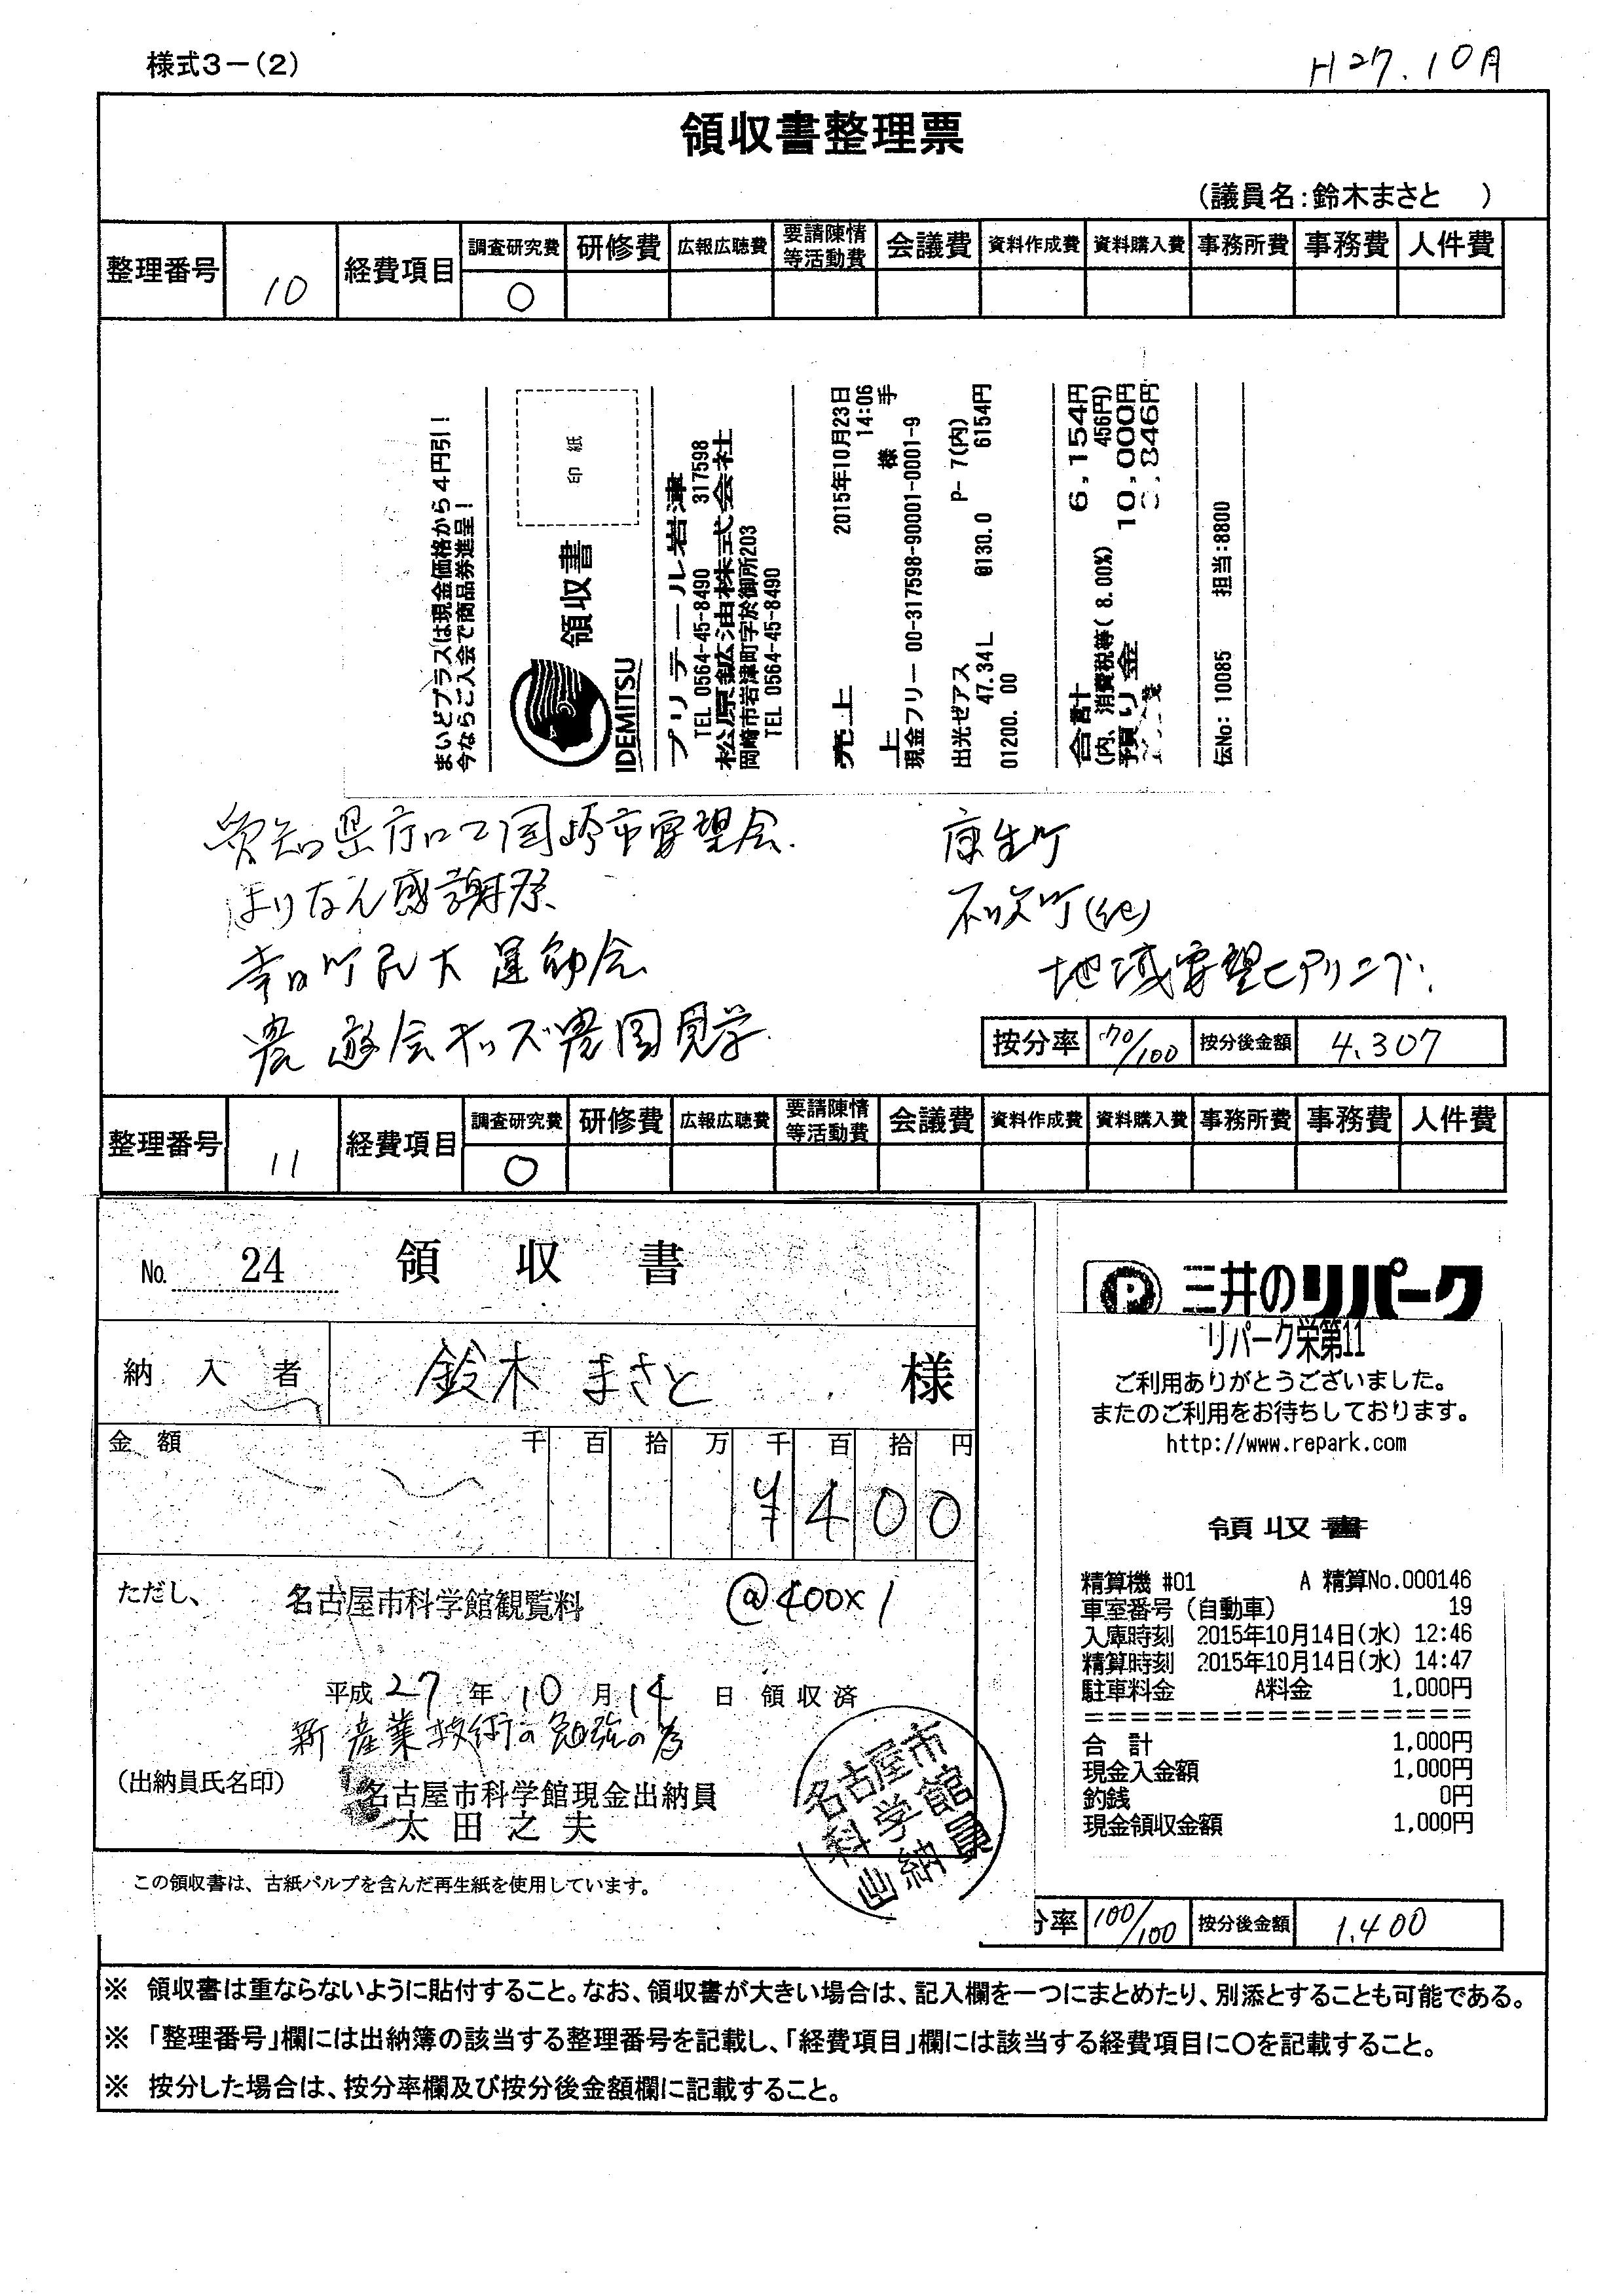 様式3-(2)
H27.10月
領収書整理票
(議員名:鈴木まさと )
整理番号 10 経費項目 調査研究費 研修費 広報広聴費 要請陳情等活動費 会議費 資料作成費 資料購入費 事務所費 事務費 人件費
○
まいどプラスは現金価格から4円引!
今ならご入会で商品券進呈!
IDEMITSU 領収書 印紙
プリテール岩津
TEL 0564-45-8490 317598
松原鉱油株式会社
岡崎市岩津町字於御所203
TEL 0564-45-8490
売上 2015年10月23日
14:06
上 様 手
現金フリー 00-317598-90001-0001-9
出光ゼアス P- 7(内)
47.34L @130.0 6154円
01200. 00
合計 6,154円
(内、消費税等( 8.00%) 456円)
預り金 10,000円
3,846円
伝No: 10085 担当:8800
愛知県庁ロマ岡崎市要望会.
まりなん感謝祭
幸田町民大運動会
農遊会キッズ農園見学.
康生町
不吹町(他)
地域要望ヒアリング.
按分率 70/100 按分後金額 4.307
整理番号 11 経費項目 調査研究費 研修費 広報広聴費 要請陳情等活動費 会議費 資料作成費 資料購入費 事務所費 事務費 人件費
○
No. 24 領収書
納入者 鈴木 まさと 様
金額 千 百 拾 万 千 百 拾 円
¥400
ただし、 名古屋市科学館観覧料 @400×1
平成27年10月14日領収済
新産業技術の勉強の為
(出納員氏名印) 名古屋市科学館現金出納員
太田之夫
名古屋市
科学館
出納員
この領収書は、古紙パルプを含んだ再生紙を使用しています。
P 三井のリパーク
リパーク栄第11
ご利用ありがとうございました。
またのご利用をお待ちしております。
http://www.repark.com
領収書
精算機 #01 A 精算No.000146
車室番号(自動車) 19
入庫時刻 2015年10月14日(水) 12:46
精算時刻 2015年10月14日(水) 14:47
駐車料金 A料金 1,000円
=================
合 計 1,000円
現金入金額 1,000円
釣銭 0円
現金領収金額 1,000円
分率 100/100 按分後金額 1.400
※ 領収書は重ならないように貼付すること。なお、領収書が大きい場合は、記入欄を一つにまとめたり、別添とすることも可能である。
※ 「整理番号」欄には出納簿の該当する整理番号を記載し、「経費項目」欄には該当する経費項目に○を記載すること。
※ 按分した場合は、按分率欄及び按分後金額欄に記載すること。